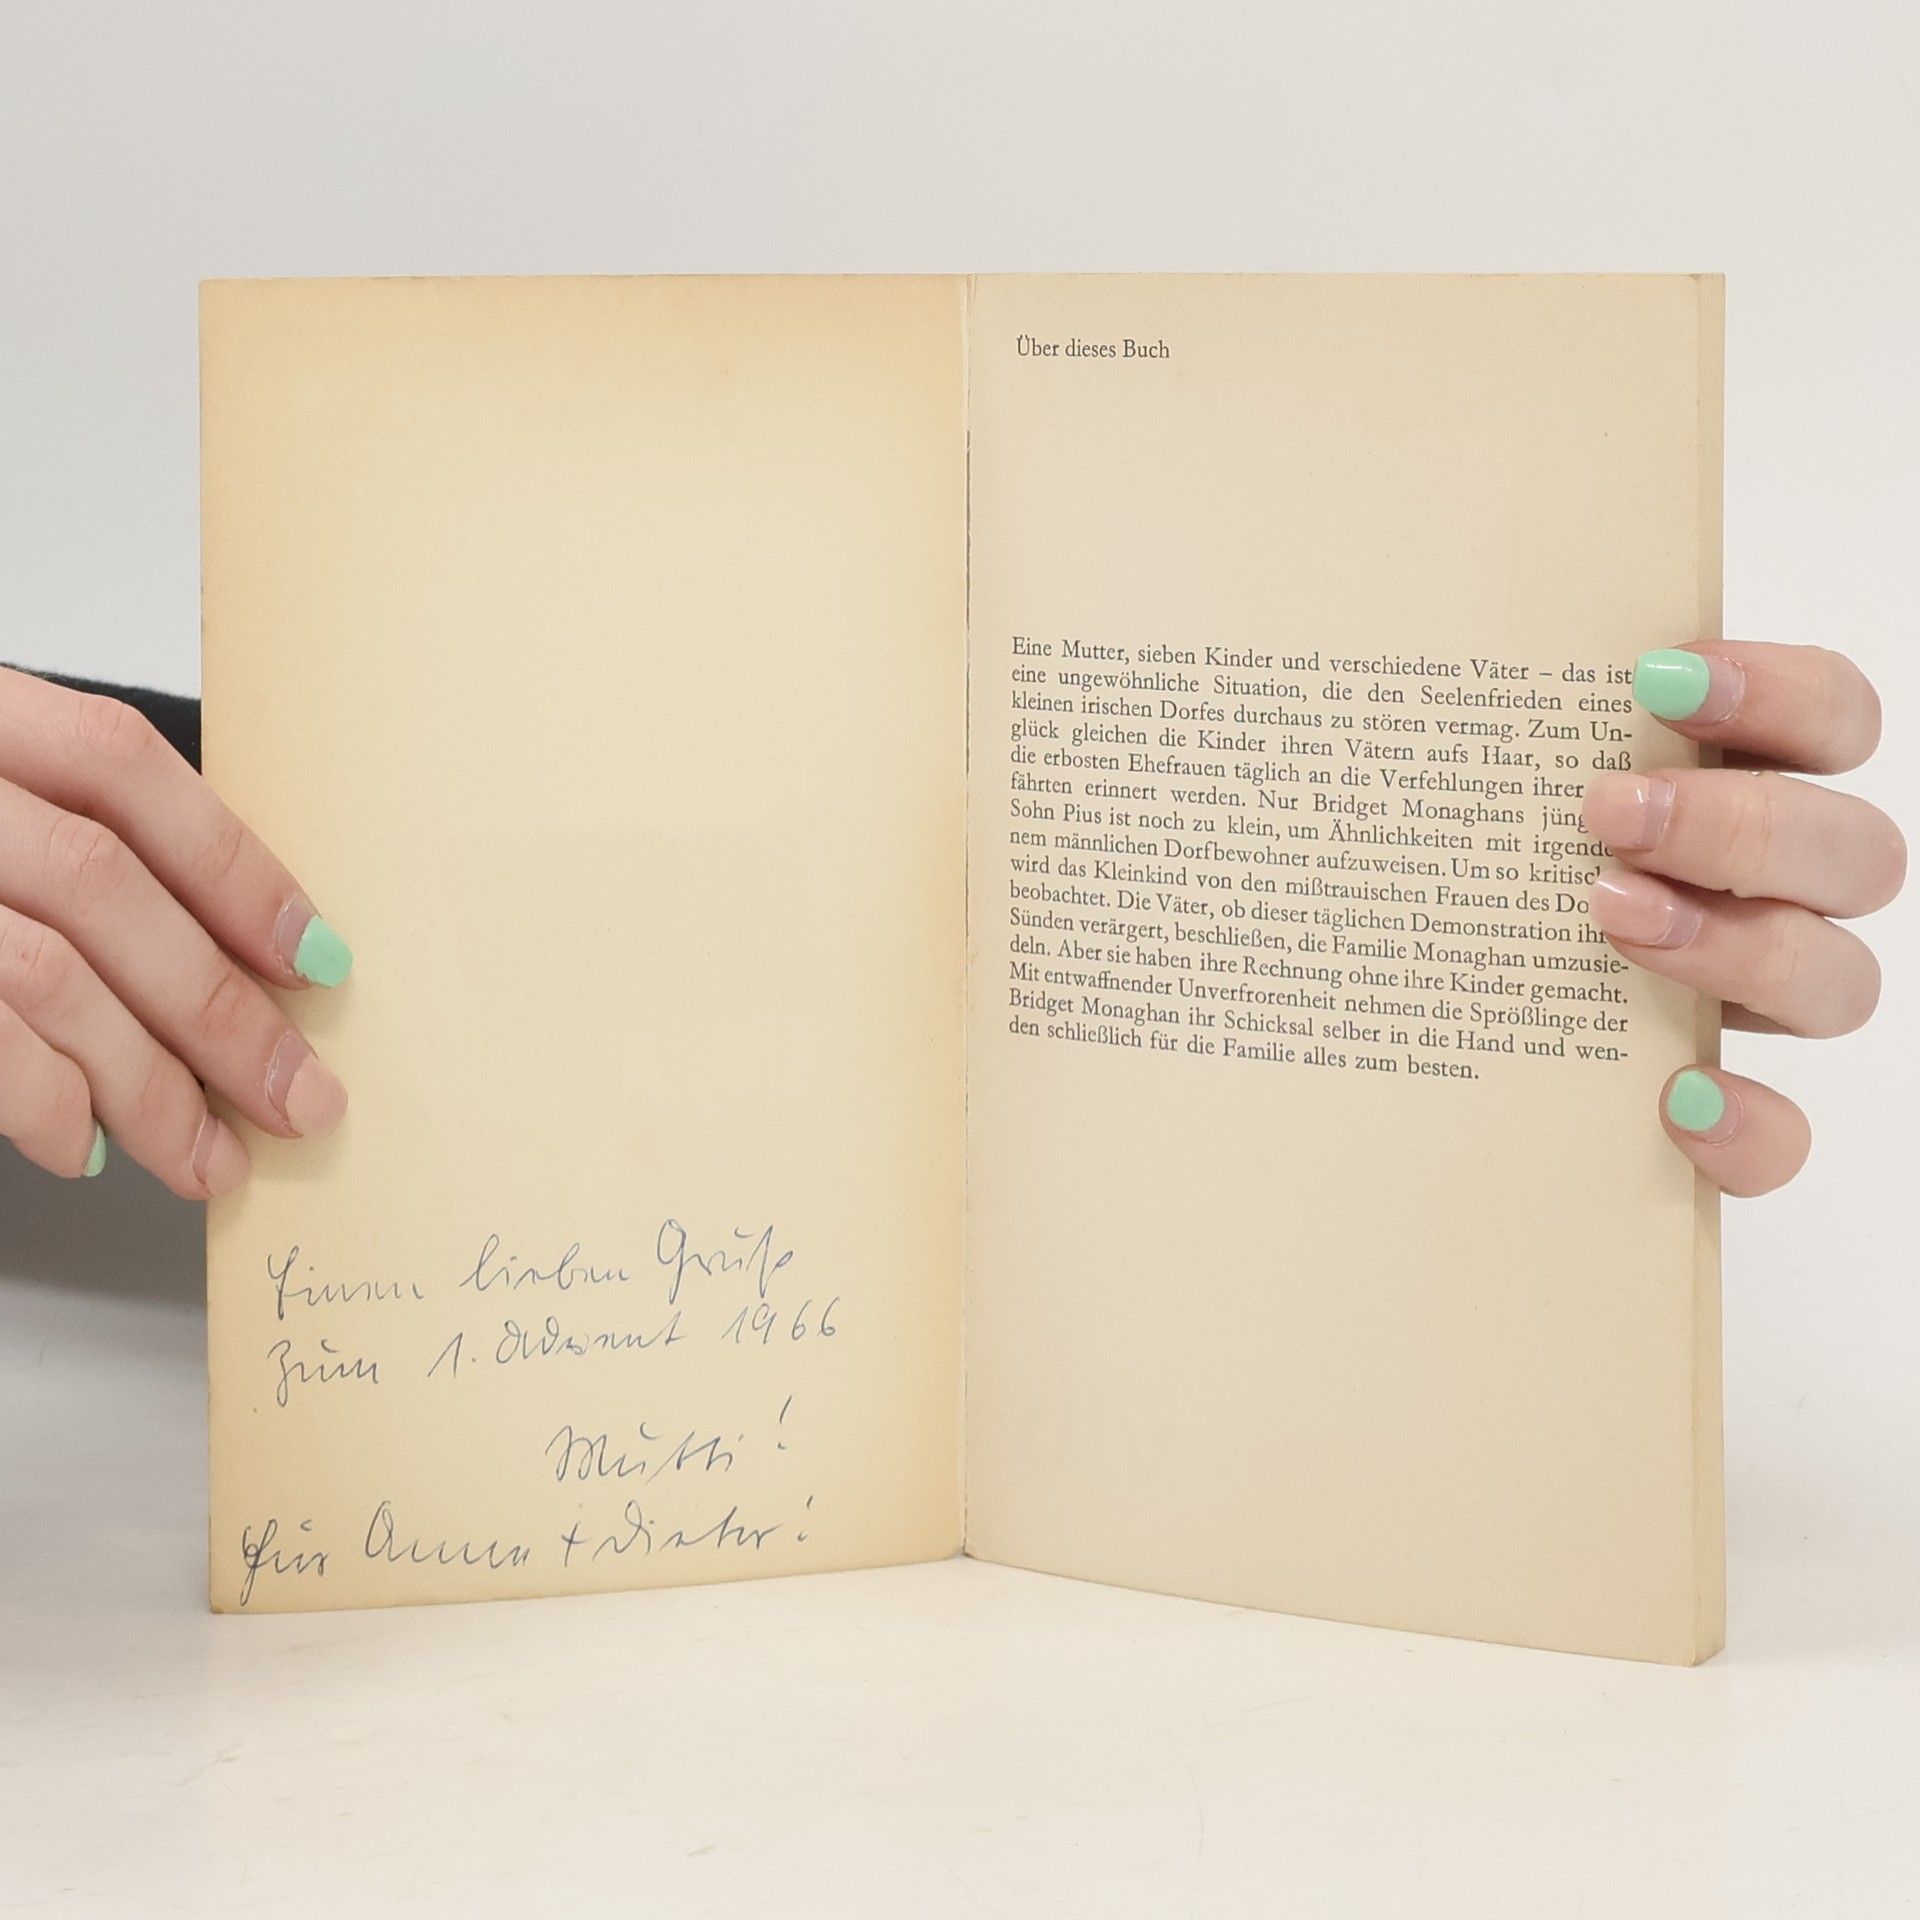 Einen lieben Gruß
zum 1. Advent 1966
Mutti!
Für Anne + Dieter!
Über dieses Buch
Eine Mutter, sieben Kinder und verschiedene Väter – das ist
eine ungewöhnliche Situation, die den Seelenfrieden eines
kleinen irischen Dorfes durchaus zu stören vermag. Zum Un-
glück gleichen die Kinder ihren Vätern aufs Haar, so daß
die erbosten Ehefrauen täglich an die Verfehlungen ihrer
fährten erinnert werden. Nur Bridget Monaghans jüng
Sohn Pius ist noch zu klein, um Ähnlichkeiten mit irgende
nem männlichen Dorfbewohner aufzuweisen. Um so kritisc
wird das Kleinkind von den mißtrauischen Frauen des Do
beobachtet. Die Väter, ob dieser täglichen Demonstration ihr
Sünden verärgert, beschließen, die Familie Monaghan umzusie-
deln. Aber sie haben ihre Rechnung ohne ihre Kinder gemacht.
Mit entwaffnender Unverfrorenheit nehmen die Sprößlinge der
Bridget Monaghan ihr Schicksal selber in die Hand und wen-
den schließlich für die Familie alles zum besten.